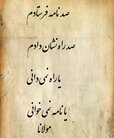 صد نامه فرستادم
صد راه نشان دادم
یا راه نمی دانی
یا نامه نمی خوانی
مولانا